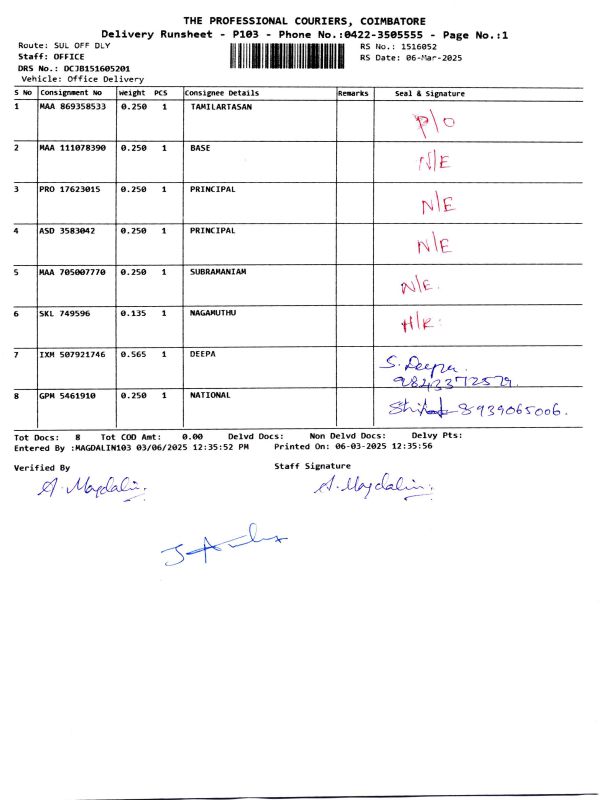 THE PROFESSIONAL COURIERS, COIMBATORE
Delivery Runsheet - P103 - Phone No.:0422-3505555 - Page No.:1
Route: SUL OFF DLY
Staff: OFFICE
DRS No.: DCJB151605201
Vehicle: Office Delivery
RS No.: 1516052
RS Date: 06-Mar-2025
S No Consignment No Weight PCS Consignee Details Remarks Seal & Signature
1 MAA 869358533 0.250 1 TAMILARTASAN P/O
2 MAA 111078390 0.250 1 BASE N/E
3 PRO 17623015 0.250 1 PRINCIPAL N/E
4 ASD 3583042 0.250 1 PRINCIPAL N/E
5 MAA 705007770 0.250 1 SUBRAMANIAM N/E.
6 SKL 749596 0.135 1 NAGAMUTHU H/R.
7 IXM 507921746 0.565 1 DEEPA S. Deepa.
9843372579.
8 GPM 5461910 0.250 1 NATIONAL 8939065006.
Tot Docs: 8 Tot COD Amt: 0.00 Delvd Docs: Non Delvd Docs: Delvy Pts:
Entered By :MAGDALIN103 03/06/2025 12:35:52 PM Printed On: 06-03-2025 12:35:56
Verified By Staff Signature
A. Magdalin. A. Magdalin.